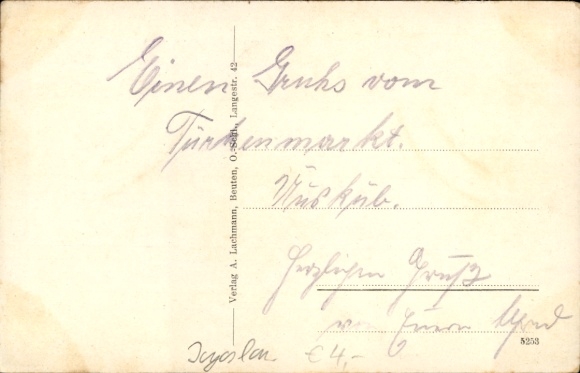 Einen Gruhs vom
Türkenmarkt.
Üsküb.
Herzlichen Gruß
von Eurem
Verlag A. Lachmann, Beuten, O. Schl., Langestr. 42
5253
Jugoslav.
€ 4,-